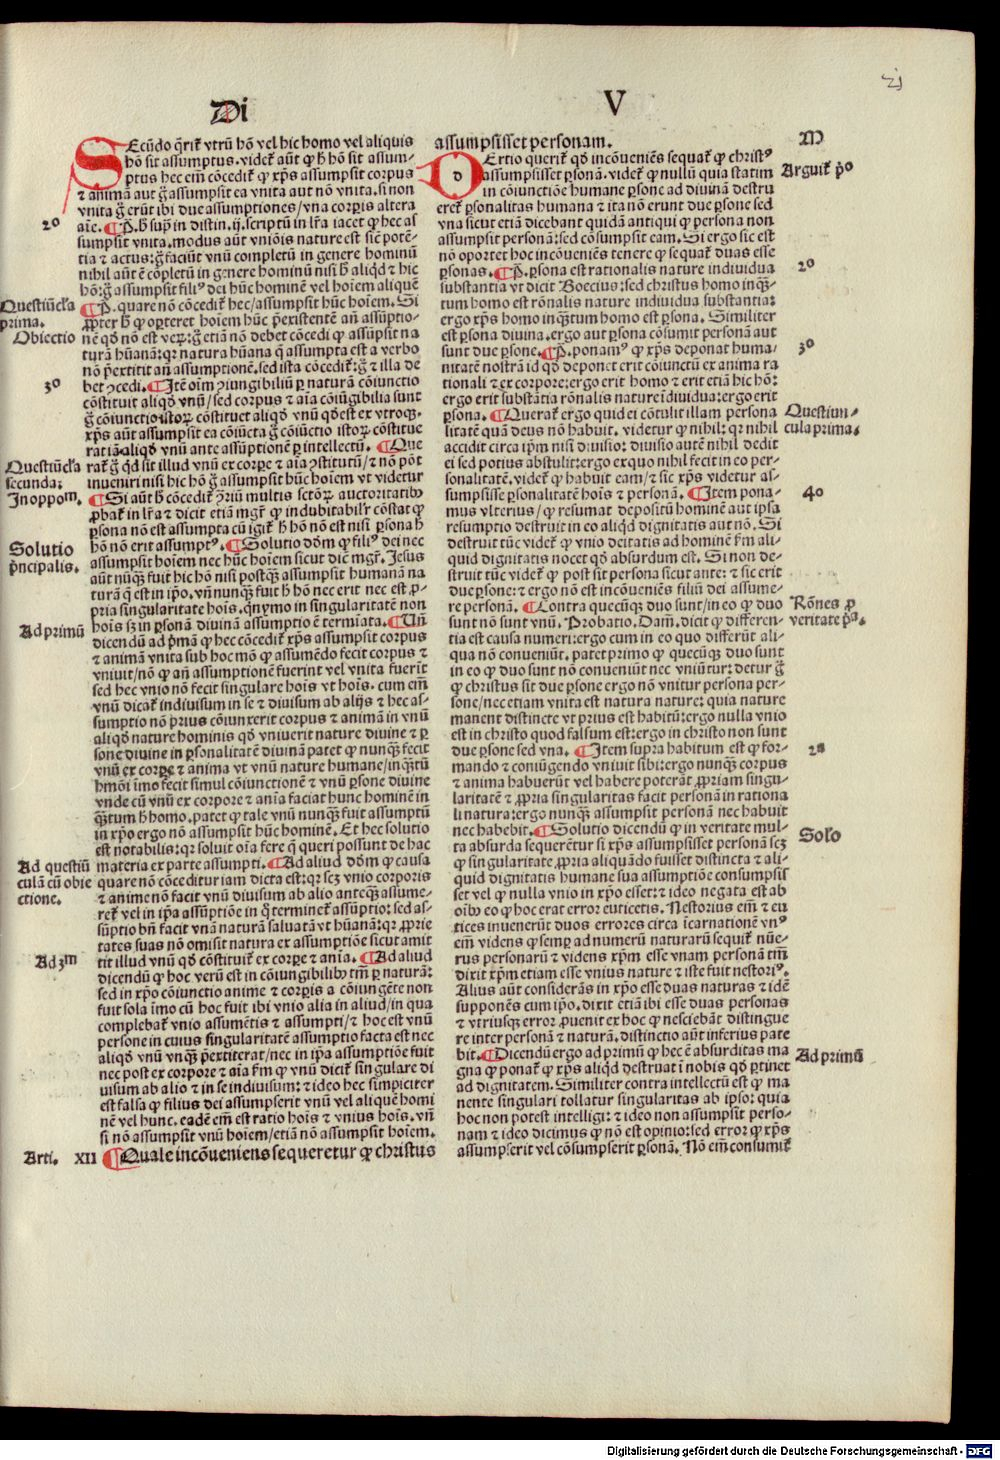 Di
V
Ecūdo q̄rit᷑ vtrū hō vel hic homo vel aliquis
hō sit assumptus. videt᷑ aūt ꝙ h̄ hō sit assum-
ptus hec em̄ cōcedit᷑ ꝙ xp̄s assumpsit corpus
⁊ animā aut g̊ assumpsit ea vnita aut nō vnita. si non
vnita g̊ erūt ibi due assumptiones/vna corꝑis altera
aīe. ¶ P̄. h̄ sup̄ in distin. ij. scriptū in lr̄a iacet ꝙ hec as
sumpsit vnita. modus aūt vniōis nature est sic̄ potē-
tia ⁊ actus: g̊ faciūt vnū completū in genere hominū
nihil aūt ē cōpletū in genere hominū nisi h̄ aliqd̄ ⁊ hic
hō: g̊ assumpsit fili⁹ dei hūc hominē vel hoīem aliquē
¶ P̄. quare nōn cōcedit᷑ hec/assumpsit hūc hoīem. Si
ꝓpter h̄ ꝙ oꝑteret hoīem hūc p̄existentē an̄ assūptio-
nē qd̄ nō est veꝝ: g̊ etiā nō debet cōcedi ꝙ assūpsit na
turā hūanā: qꝛ natura hūana q̄ assumpta est a verbo
nō p̄extitit an̄ assumptionē. sed ista cōcedit᷑: g̊ ⁊ illa de
bet ꝯcedi. ¶ Itē oīm ꝯiungibiliū ꝑ naturā cōiunctio
cōstituit aliqd̄ vnū/sed corpus ⁊ aīa cōiūgibilia sunt
g̊ cōiunctio istoꝝ cōstituet aliqd̄ vnū qd̄ est ex vtroqꝫ.
xp̄s aūt assumpsit ea cōiūcta g̊ cōiunctio istoꝝ cōstitue
rat iā aliqd̄ vnū ante assūptionē ꝑ intellectū. ¶ Que
rat᷑ g̊ qd̄ sit illud vnū ex corꝑe ⁊ aīa ꝯstitutū/⁊ nō pōt
inueniri nisi hic hō g̊ assumpsit hūc hoīem vt videtur
¶ Si aūt h̄ cōcedit᷑ ꝯ̄riū multis sctōꝝ auctoritatibꝰ
ꝓbat᷑ in lr̄a ⁊ dicit etiā mgr̄ ꝙ indubitabilr̄ cōstat ꝙ
ꝑsona nō est assumpta cū igit᷑ h̄ hō nō est nisi ꝑsona h̄
hō nō erit assumpt⁹. ¶ Solutio dōm ꝙ fili⁹ dei nec
assumpsit hoīem nec hūc hoīem sicut dic̄ mgr̄. Jesus
aūt nūqꝫ fuit hic hō nisi postqꝫ assumpsit humanā na
turā q̄ est in ip̄o. vn̄ nunqꝫ fuit h̄ hō nec erit nec est ꝓ-
pria singularitate hoīs. qnymo in singularitatē non
hoīs sꝫ in ꝑsonā diuinā assumptio ē termīata. ¶ Un̄
dicendū ad p̄mā ꝙ hec cōcedit᷑ xp̄s assumpsit corpus
⁊ animā vnita sub hoc mō ꝙ assumēdo fecit corpus ⁊
vniuit/nō ꝙ an̄ assumptionē fuerint vel vnita fuerīt
sed hec vnio nō fecit singulare hoīs vt hoīs. cum em̄
vnū dicat᷑ indiuisum in se ⁊ diuisum ab alijs ⁊ hec as-
sumptio nō prius cōiunxerit corpus ⁊ animā in vnū
aliqd̄ nature hominis qd̄ vniuerit nature diuine ⁊ ꝑ
sone diuine in ꝑsonalitatē diuinā patet ꝙ nunqꝫ fecit
vnū ex corꝑe ⁊ anima vt vnū nature humane/inqꝫtū
hmōi īmo fecit simul cōiunctionē ⁊ vnū ꝑsone diuine
vnde cū vnū ex corpore ⁊ anīa faciat hunc hominē in
qꝫtum h̄ homo. patet ꝙ tale vnū nunqꝫ fuit assumptū
in xp̄o ergo nō assumpsit hūc hominē. Et hec solutio
est notabilis: qꝛ soluit oīa fere q̄ queri possunt de hac
materia ex parte assumpti. ¶ Ad aliud dōm ꝙ causa
quare nōn cōceditur iam dicta est: qꝛ scꝫ vnio corporis
⁊ anime nōn facit vnū diuisum ab alio anteqꝫ assume-
ret᷑ vel in ip̄a assūptiōe in q̄ terminet᷑ assūptio: sed as-
sūptio bn̄ facit vnā naturā saluatā vt hūanā: qꝛ ꝓprie
tates suas nō omisit natura ex assumptiōe sicut amit
tit illud vnū qd̄ cōstituit᷑ ex corꝑe ⁊ anīa. ¶ Ad aliud
dicendū ꝙ hoc verū est in cōiungibilibꝰ tm̄ ꝑ naturā:
sed in xp̄o cōiunctio anime ⁊ corꝑis a cōiungēte non
fuit sola īmo cū hoc fuit ibi vnio alia in aliud/in qua
complebat᷑ vnio assumētis ⁊ assumpti/⁊ hoc est vnū
persone in cuius singularitatē assumptio facta est nec
aliqd̄ vnū vnqꝫ p̄extiterat/nec in ip̄a assumptiōe fuit
nec post ex corpore ⁊ aīa fm̄ ꝙ vnū dicit᷑ singulare di
uisum ab alio ⁊ in se indiuisum: ⁊ ideo hec simpiciter
est falsa ꝙ filius dei assumpserit vnū vel aliquē homi
nē vel hunc. eadē em̄ est ratio hoīs ⁊ vnius hoīs. vn̄
si nō assumpsit vnū hoīem/etiā nō assumpsit hoīem.
¶ Quale incōueniens sequeretur ꝙ christus
20
Questiūcl̄a
prima.
Obiectio
30
Questiūcl̄a
secunda:
In oppom̄.
Solutio
p̄ncipalis.
Ad primū
Ad questiū
culā cū obie
ctione.
Ad 3m
Arti. XII
assumpsisset personam.
d
Ertio querit᷑ qd̄ incōueniēs sequat᷑ ꝙ christ⁹
assumpsisset ꝑsonā. videt᷑ ꝙ nullū quia statim
in cōiunctiōe humane ꝑsone ad diuinā destru
eret᷑ ꝑsonalitas humana ⁊ ita nō erunt due ꝑsone sed
vna sicut etiā dicebant quidā antiqui ꝙ persona non
assumpsit personā: sed cōsumpsit eam. Si ergo sic est
nō oportet hoc incōueniēs tenere ꝙ sequat᷑ duas esse
ꝑsonas. ¶ P̄. ꝑsona est rationalis nature indiuidua
substantia vt dicit Boecius: sed christus homo inqꝫ-
tum homo est rōnalis nature indiuidua substantia:
ergo xp̄s homo inqꝫtum homo est ꝑsona. Similiter
est ꝑsona diuina. ergo aut ꝑsona cōsumit personā aut
sunt due ꝑsone. ¶ P̄. ponam⁹ ꝙ xp̄s deponat huma/
nitatē nostrā id qd̄ deponet erit cōiunctū ex anima ra
tionali ⁊ ex corpore: ergo erit homo ⁊ erit etiā hic hō:
ergo erit substātia rōnalis nature īdiuidua: ergo erit
ꝑsona. ¶ Querat᷑ ergo quid ei cōtulit illam persona
litatē quā deus nō habuit. videtur ꝙ nihil: qꝛ nihil
accidit circa ip̄m nisi diuisio: diuisio autē nihil dedit
ei sed potius abstulit: ergo ex quo nihil fecit in eo per-
sonalitatē. videt᷑ ꝙ habuit eam/⁊ sic xp̄s videtur as-
sumpsisse ꝑsonalitatē hoīs ⁊ personā. ¶ Item pona-
mus vlterius/ꝙ resumat depositū hominē aut ipsa
resumptio destruit in eo aliqd̄ dignitatis aut nō. Si
destruit tūc videt᷑ ꝙ vnio deitatis ad hominē fm̄ ali-
quid dignitatis nocet qd̄ absurdum est. Si non de-
struit tūc videt᷑ ꝙ post sit persona sicut ante: ⁊ sic erit
due ꝑsone: ⁊ ergo nō est incōueniēs filiū dei assume-
re personā. ¶ Contra quecūqꝫ duo sunt/in eo ꝙ duo
sunt nōn sunt vnū. Probatio. Dam̄. dicit ꝙ differen-
tia est causa numeri: ergo cum in eo quo differūt ali-
qua nōn conueniūt. patet primo ꝙ quecūqꝫ duo sunt
in eo ꝙ duo sunt nō conueniūt nec vniūtur: detur g̊
ꝙ christus sit due ꝑsone ergo nō vnitur persona per-
sone/nec etiam vnita est natura nature: quia nature
manent distincte vt prius est habitū: ergo nulla vnio
est in christo quod falsum est: ergo in christo non sunt
due ꝑsone sed vna. ¶ Item supra habitum est ꝙ for-
mando ⁊ coniūgendo vniuit sibi: ergo nunqꝫ corpus
⁊ anima habuerūt vel habere poterāt ꝓpriam singu-
laritatē ⁊ ꝓpria singularitas facit personā in rationa
li natura: ergo nunqꝫ assumpsit personā nec habuit
nec habebit. ¶ Solutio dicendū ꝙ in veritate mul-
ta absurda sequerētur si xp̄s assumpsisset personā scꝫ
ꝙ singularitate ꝓpria aliquādo fuisset distincta ⁊ ali-
quid dignitatis humane sua assumptiōe consumpsis
set vel ꝙ nulla vnio in xp̄o esset: ⁊ ideo negata est ab
oībꝰ eo ꝙ hoc erat error euticetis. Nestorius em̄ ⁊ eu
tices inuenerūt duos errores circa īcarnationē vn⁹
em̄ videns ꝙ semꝑ ad numerū naturarū sequit᷑ nūe-
rus personarū ⁊ videns xp̄m esse vnam personā tm̄
dixit xp̄m etiam esse vnius nature ⁊ iste fuit nestori⁹.
Alius aūt considerās in xp̄o esse duas naturas ⁊ idē
supponēs cum ip̄o. dixit etiā ibi esse duas personas
⁊ vtriusqꝫ error ꝓuenit ex hoc ꝙ nesciebāt distingue
re inter personā ⁊ naturā. distinctio aūt inferius pate
bit. ¶ Dicendū ergo ad primū ꝙ hec ē absurditas ma
gna ꝙ ponat᷑ ꝙ xp̄s aliqd̄ destruat ī nobis qd̄ ꝑtinet
ad dignitatem. Similiter contra intellectū est ꝙ ma
nente singulari tollatur singularitas ab ipso: quia
hoc non potest intelligi: ⁊ ideo non assumpsit perso-
nam ⁊ ideo dicimus ꝙ nō est opinio: sed error ꝙ xp̄s
assumpserit vel cōsumpserit ꝑsonā. Nō em̄ consumit᷑
Arguit᷑ p̄o
20
30
Questiun-
cula prima.
40
Rōnes ꝓ
veritate p̄a.
Solo
Ad primū
Digitalisierung gefördert durch die Deutsche Forschungsgemeinschaft - DFG